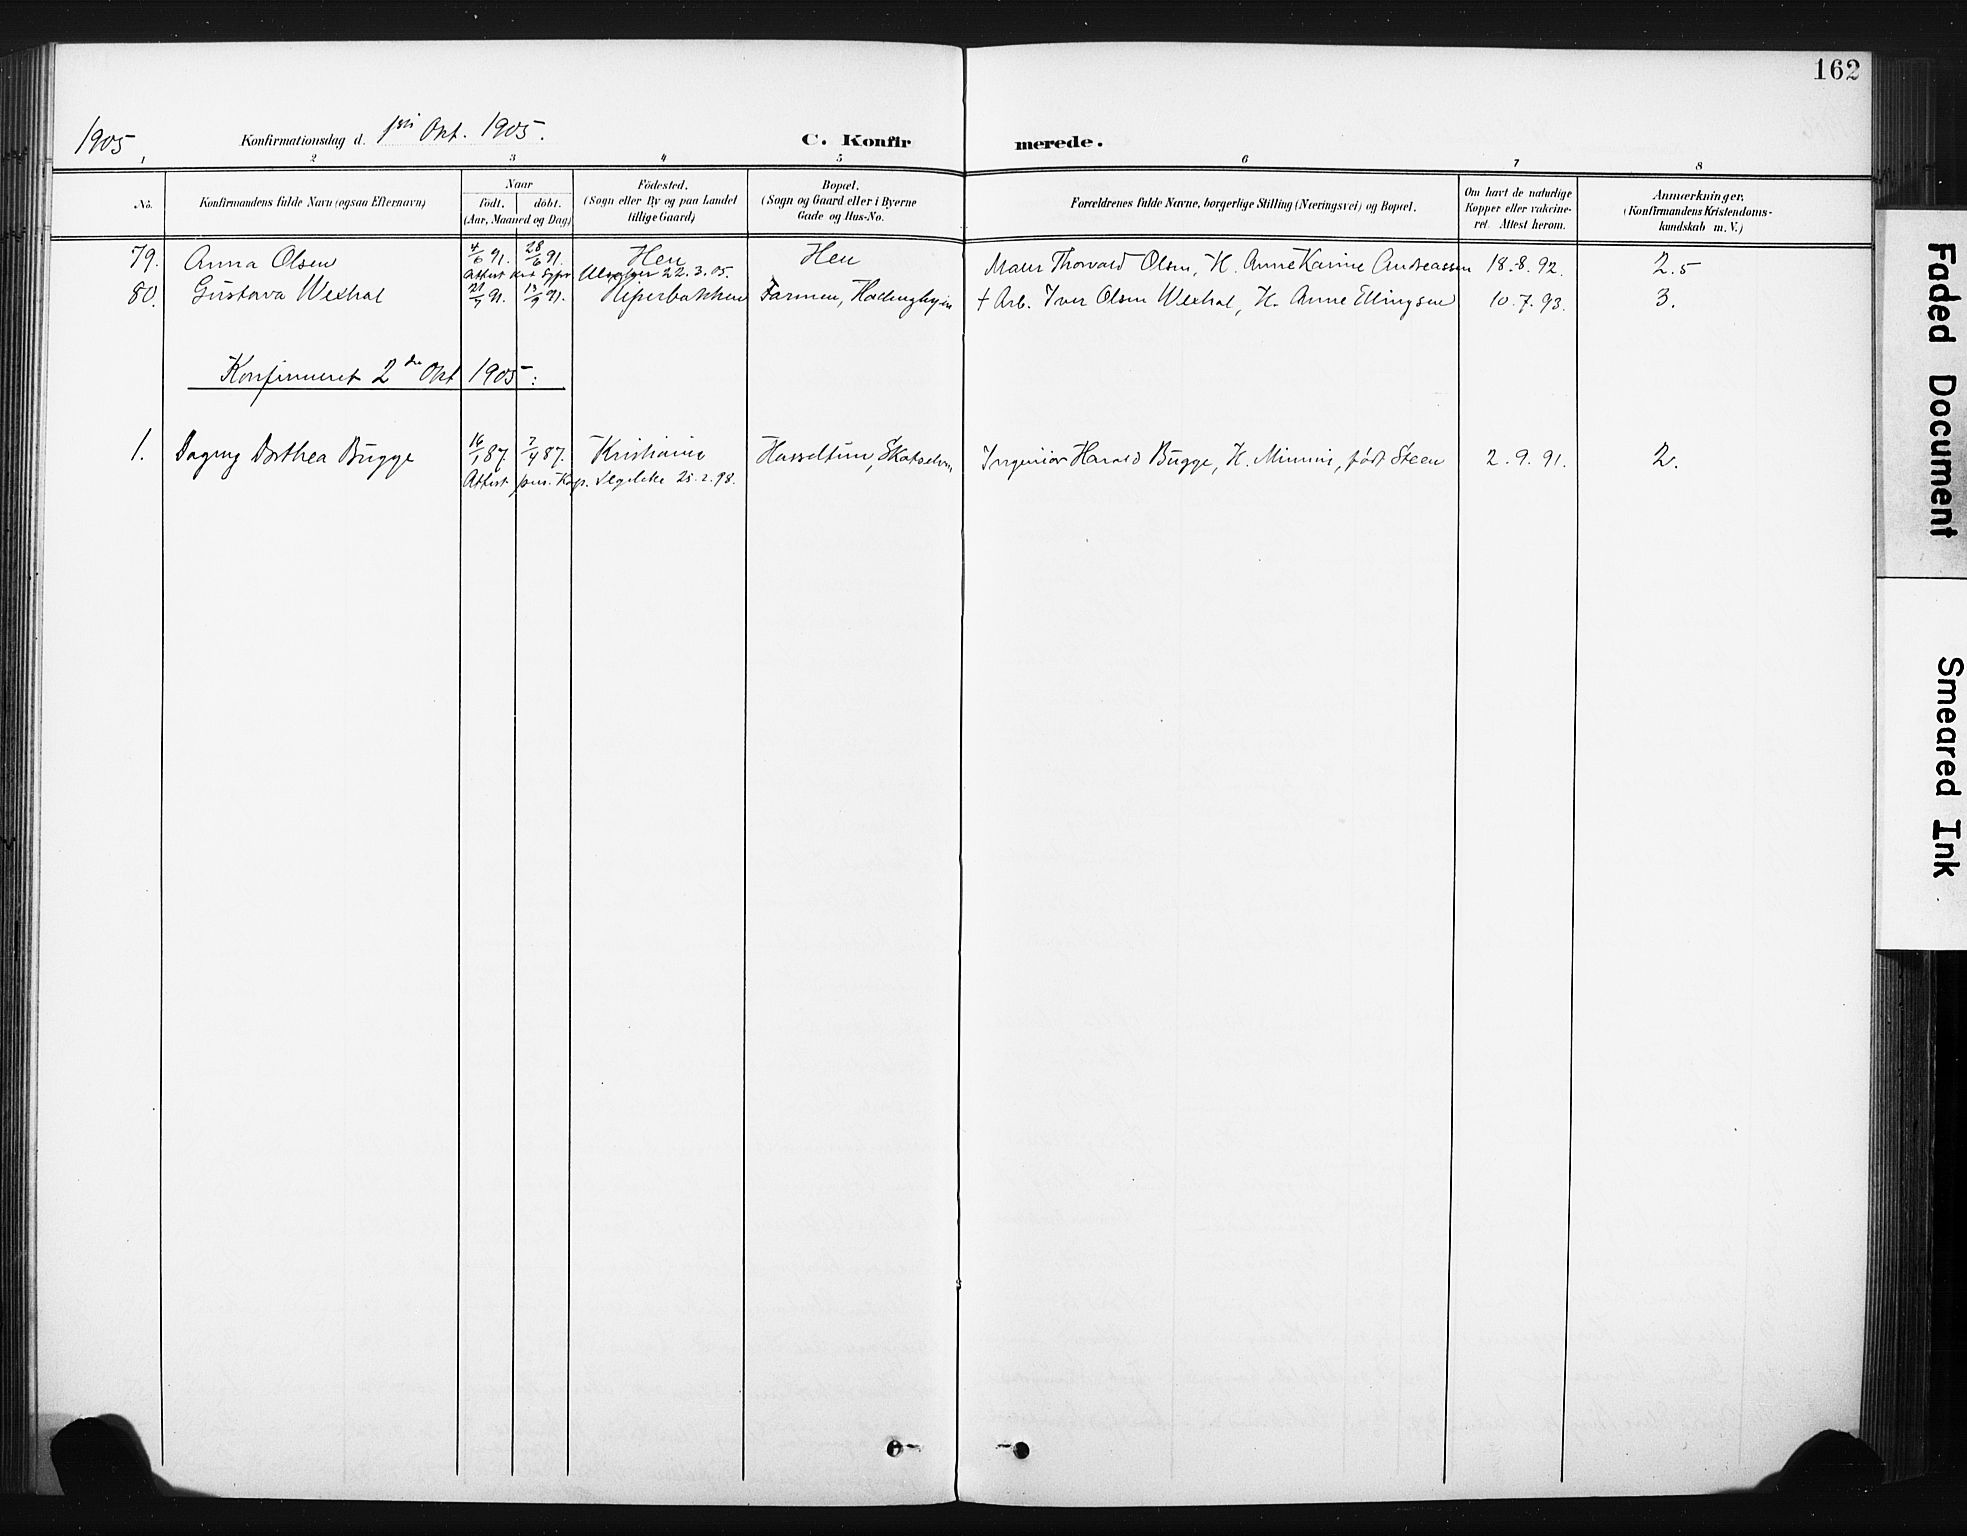 162
1905
Konfirmationsdag d. Okt. 1905.
C. Konfirmerede.
1 2 3 4 5 6 7 8
No.
Konfirmandens fulde Navn (ogsaa Efternavn)
Naar
födt. döbt.
(Aar, Maaned og Dag)
Födested.
(Sogn eller By og paa Landet
tillige Gaard)
Bopæl.
(Sogn og Gaard eller i Byerne
Gade og Hus-No.
Forældrenes fulde Navne, borgerlige Stilling (Næringsvei) og Bopæl.
Om havt de naturlige
Kopper eller vakcine-
ret. Attest herom.
Anmærkninger.
(Konfirmandens Kristendoms-
kundskab m. V.)
79. Anna Olsen 4/6 91. 28/6 91. Hen Hen Maler Thorvald Olsen, H. Anne Karine Andreassen 18.8.92. 2.5
Attest 22.3.05.
80. Gustava Wexhal 91. 13/9 91. Hiperbakken Farmen, + Arb. Iver Olsen Wexhal, H. Anne Ellingsen 10.7.93. 3.
Konfirmeret 2den Okt 1905:
1. Dagny Dorthea Bugge 16/1 87. 7/4 87. Kristiania Hasseltun, Ingeniör Harald Bugge, H. födt Steen 2.9.91. 2.
Attest pers. Kap. 98.
Faded Document
Smeared Ink